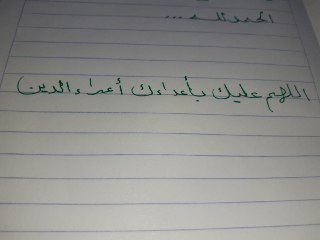 الحمد لله ...
اللهم عليك بأعداءك أعداء الدين